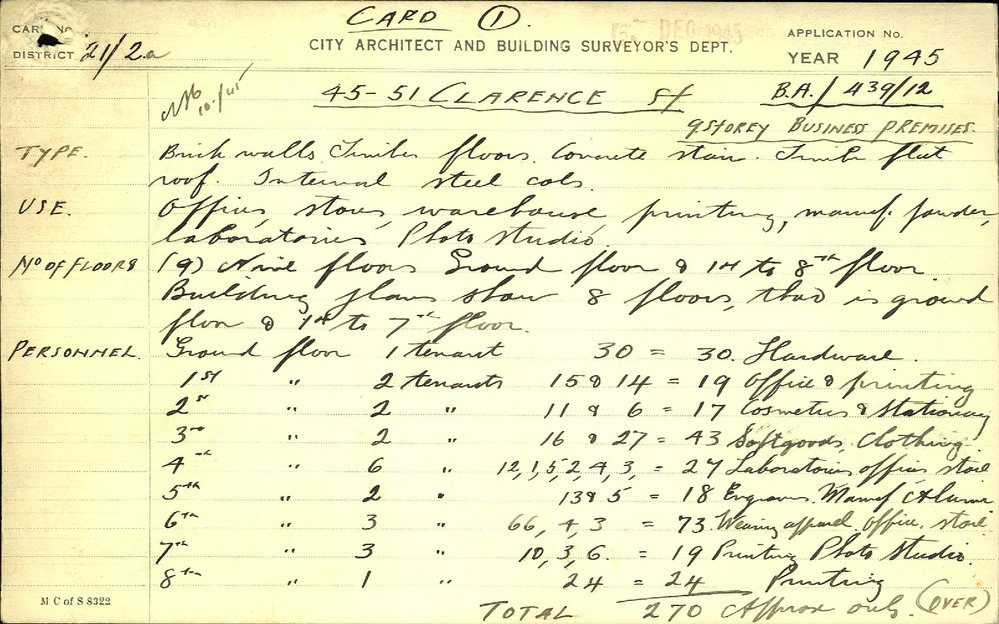 CARD 1.
CARD No.
15 DEC 1945
CITY ARCHITECT AND BUILDING SURVEYOR'S DEPT.
APPLICATION No.
DISTRICT 21/2a
YEAR 1945
45-51 CLARENCE St
B.A./439/12
9 STOREY BUSINESS PREMISES.
TYPE. Brick walls Timber floors. Concrete stair. Timber flat
roof. Internal steel cols.
USE. Offices, stores, warehouse, printing, manuf. powder,
laboratories, Photo studio.
No OF FLOORS (9) Nine floors Ground floor & 1st to 8th floor
Building plans show 8 floors, that is ground
floor & 1st to 7th floor.
PERSONNEL. Ground floor 1 tenant 30 = 30. Hardware.
1ST " 2 tenants 15 & 14 = 19 Office & printing
2nd " 2 " 11 & 6 = 17 Cosmetics & Stationary
3rd " 2 " 16 & 27 = 43 Softgoods, Clothing.
4th " 6 " 12,1,5,2,4,3, = 27 Laboratories offices store
5th " 2 " 13 & 5 = 18 Engravers. Manuf
6th " 3 " 66, 4, 3 = 73. Wearing apparel, office, store
7th " 3 " 10, 3, 6. = 19 Printing Photo Studio.
8th " 1 " 24 = 24 Printing
M C of S 8322
TOTAL 270 Approx only. (OVER)